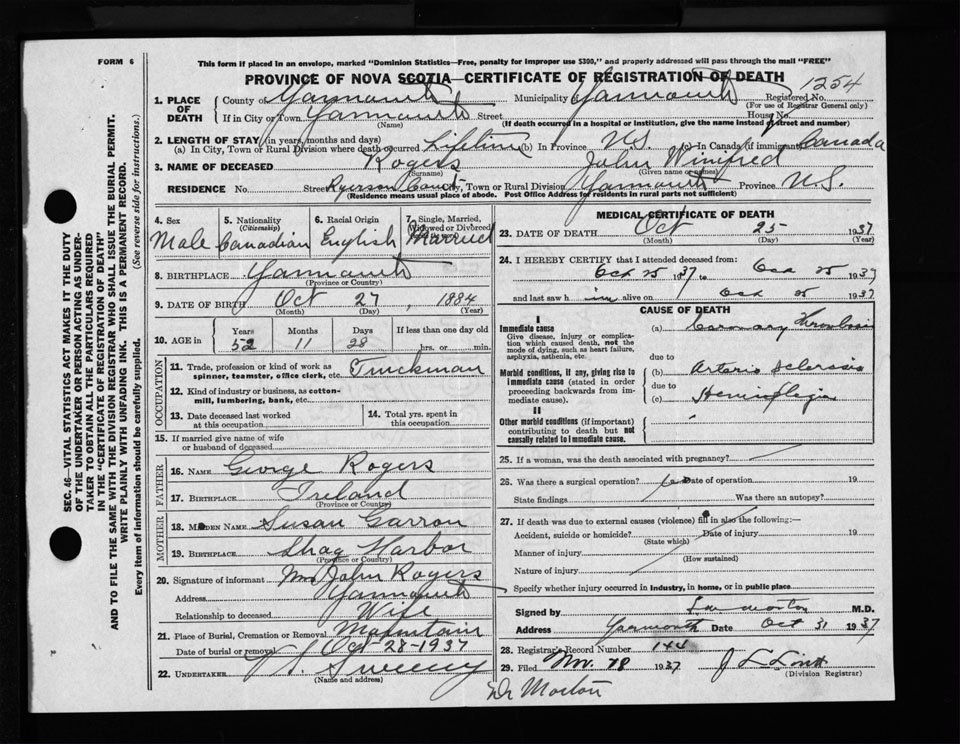 FORM 6
This form if placed in an envelope, marked "Dominion Statistics—Free, penalty for improper use $300," and properly addressed will pass through the mail "FREE"
PROVINCE OF NOVA SCOTIA—CERTIFICATE OF REGISTRATION OF DEATH
1254
1. PLACE OF DEATH
County of Yarmouth Municipality of Yarmouth Registered No.
(For use of Registrar General only)
If in City or Town Yarmouth Street House No.
(Name) (If death occurred in a hospital or institution, give the name instead of street and number)
2. LENGTH OF STAY (in years, months and days)
(a) In City, Town or Rural Division where death occurred Lifetime (b) In Province N.S. (c) In Canada (if immigrant) Canada
3. NAME OF DECEASED Rogers John Winifred
(Surname) (Given name or names)
RESIDENCE No. Street Ryerson Court City, Town or Rural Division Yarmouth Province N.S.
(Residence means usual place of abode. Post Office Address for residents in rural parts not sufficient)
SEC. 46—VITAL STATISTICS ACT MAKES IT THE DUTY
OF THE UNDERTAKER OR PERSON ACTING AS UNDER-
TAKER TO OBTAIN ALL THE PARTICULARS REQUIRED
IN THE "CERTIFICATE OF REGISTRATION OF DEATH"
AND TO FILE THE SAME WITH THE DIVISION REGISTRAR WHO SHALL ISSUE THE BURIAL PERMIT.
WRITE PLAINLY WITH UNFADING INK. THIS IS A PERMANENT RECORD.
Every item of information should be carefully supplied. (See reverse side for instructions.)
4. Sex Male
5. Nationality (Citizenship) Canadian
6. Racial Origin English
7. Single, Married, Widowed or Divorced Married
8. BIRTHPLACE Yarmouth
(Province or Country)
9. DATE OF BIRTH Oct 27, 1884
(Month) (Day) (Year)
10. AGE in Years Months Days If less than one day old
52 11 28 hrs. or min.
OCCUPATION
11. Trade, profession or kind of work as spinner, teamster, office clerk, etc. Truckman
12. Kind of industry or business, as cotton-mill, lumbering, bank, etc.
13. Date deceased last worked at this occupation
14. Total yrs. spent in this occupation
15. If married give name of wife or husband of deceased
FATHER
16. NAME George Rogers
17. BIRTHPLACE Ireland
(Province or Country)
MOTHER
18. MAIDEN NAME Susan Garron
19. BIRTHPLACE Shag Harbor
(Province or Country)
20. Signature of informant Mrs John Rogers
Address Yarmouth
Relationship to deceased Wife
21. Place of Burial, Cremation or Removal Mountain
Date of burial or removal Oct-28-1937
22. UNDERTAKER Sweeny
(Name and address)
MEDICAL CERTIFICATE OF DEATH
23. DATE OF DEATH Oct 25 1937
(Month) (Day) (Year)
24. I HEREBY CERTIFY that I attended deceased from:
Oct 25 1937 to Oct 25 1937
and last saw him alive on Oct 25 1937
CAUSE OF DEATH
I
Immediate cause
Give disease, injury or complication which caused death, not the mode of dying, such as heart failure, asphyxia, asthenia, etc.
(a) Coronary Thrombosis
due to
Morbid conditions, if any, giving rise to immediate cause (stated in order proceeding backwards from immediate cause).
(b) Arterio Sclerosis
due to
(c) Hemiplegia
II
Other morbid conditions (if important) contributing to death but not causally related to immediate cause.
25. If a woman, was the death associated with pregnancy?
26. Was there a surgical operation? Date of operation 19
State findings Was there an autopsy?
27. If death was due to external causes (violence) fill in also the following:—
Accident, suicide or homicide? Date of injury 19
(State which)
Manner of injury
(How sustained)
Nature of injury
Specify whether injury occurred in Industry, in home, or in public place
Signed by Morton M.D.
Address Yarmouth Date Oct 31 1937
28. Registrar's Record Number 144
29. Filed Nov. 1937
(Division Registrar)
Dr Morton